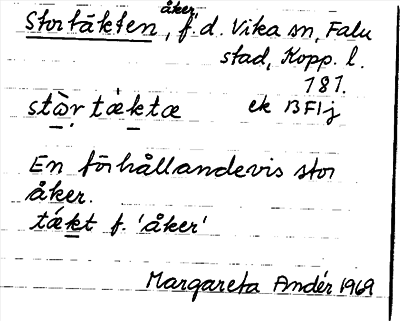 Stortäkten, åker, f.d. Vika sn, Falu
stad, Kopp. l.
181.
stòrtæktæ ek BFlj
En förhållandevis stor
åker.
tǽkt f. 'åker'
Margareta Andér 1969